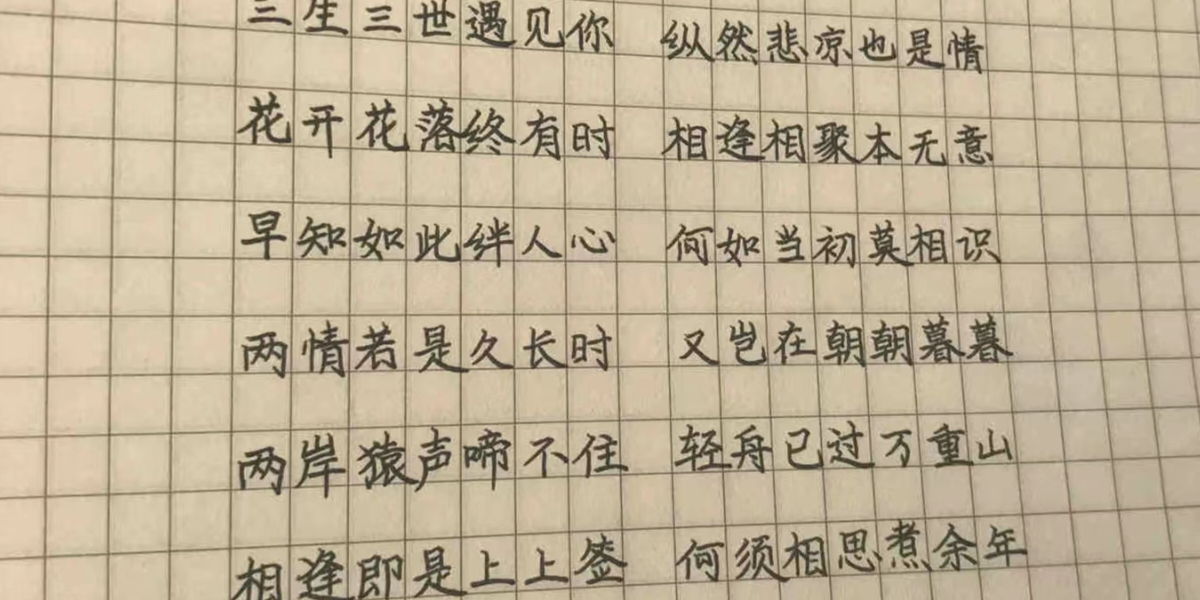 三生三世遇见你 纵然悲凉也是情
花开花落终有时 相逢相聚本无意
早知如此绊人心 何如当初莫相识
两情若是久长时 又岂在朝朝暮暮
两岸猿声啼不住 轻舟已过万重山
相逢即是上上签 何须相思煮余年